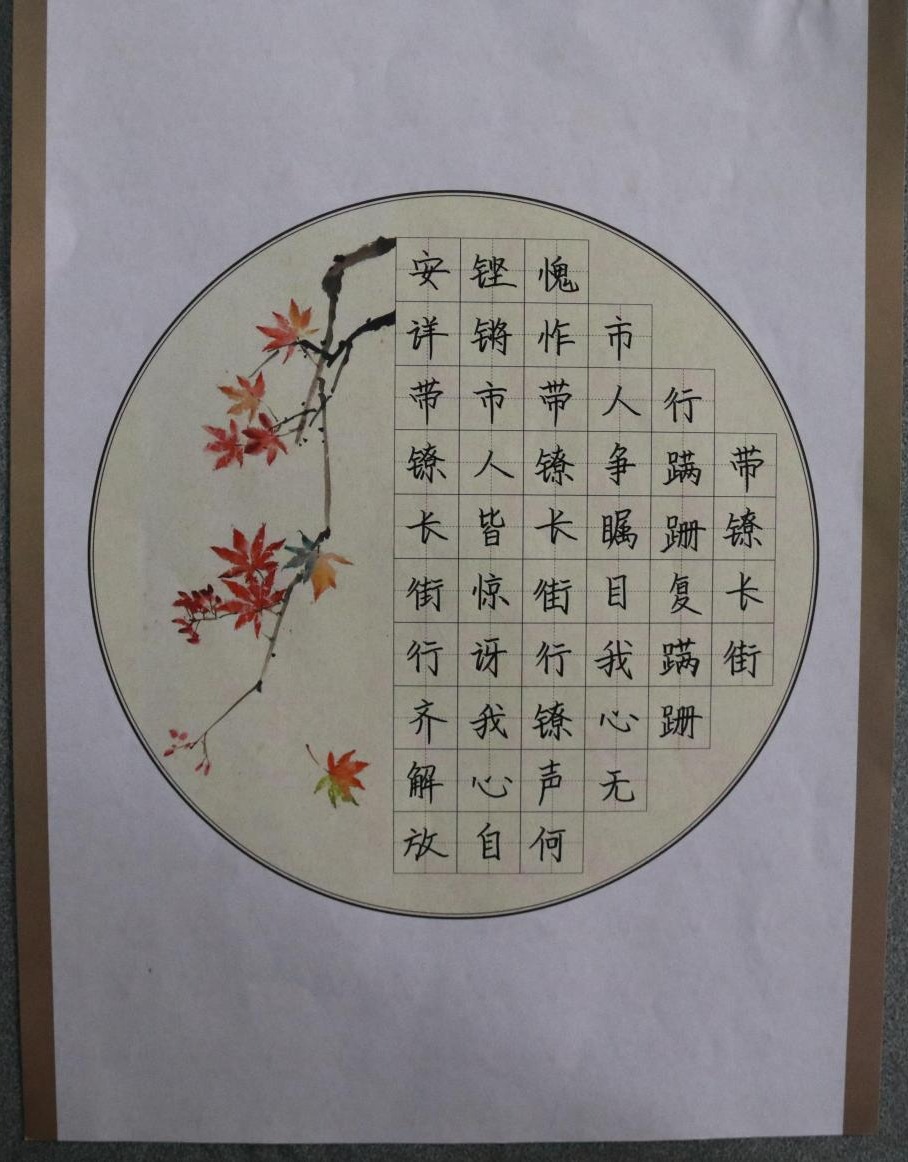 带镣长街
行蹒跚复蹒跚
市人争瞩目我心无
愧怍带镣长街行镣声何
铿锵市人皆惊讶我心自
安详带镣长街行齐解放